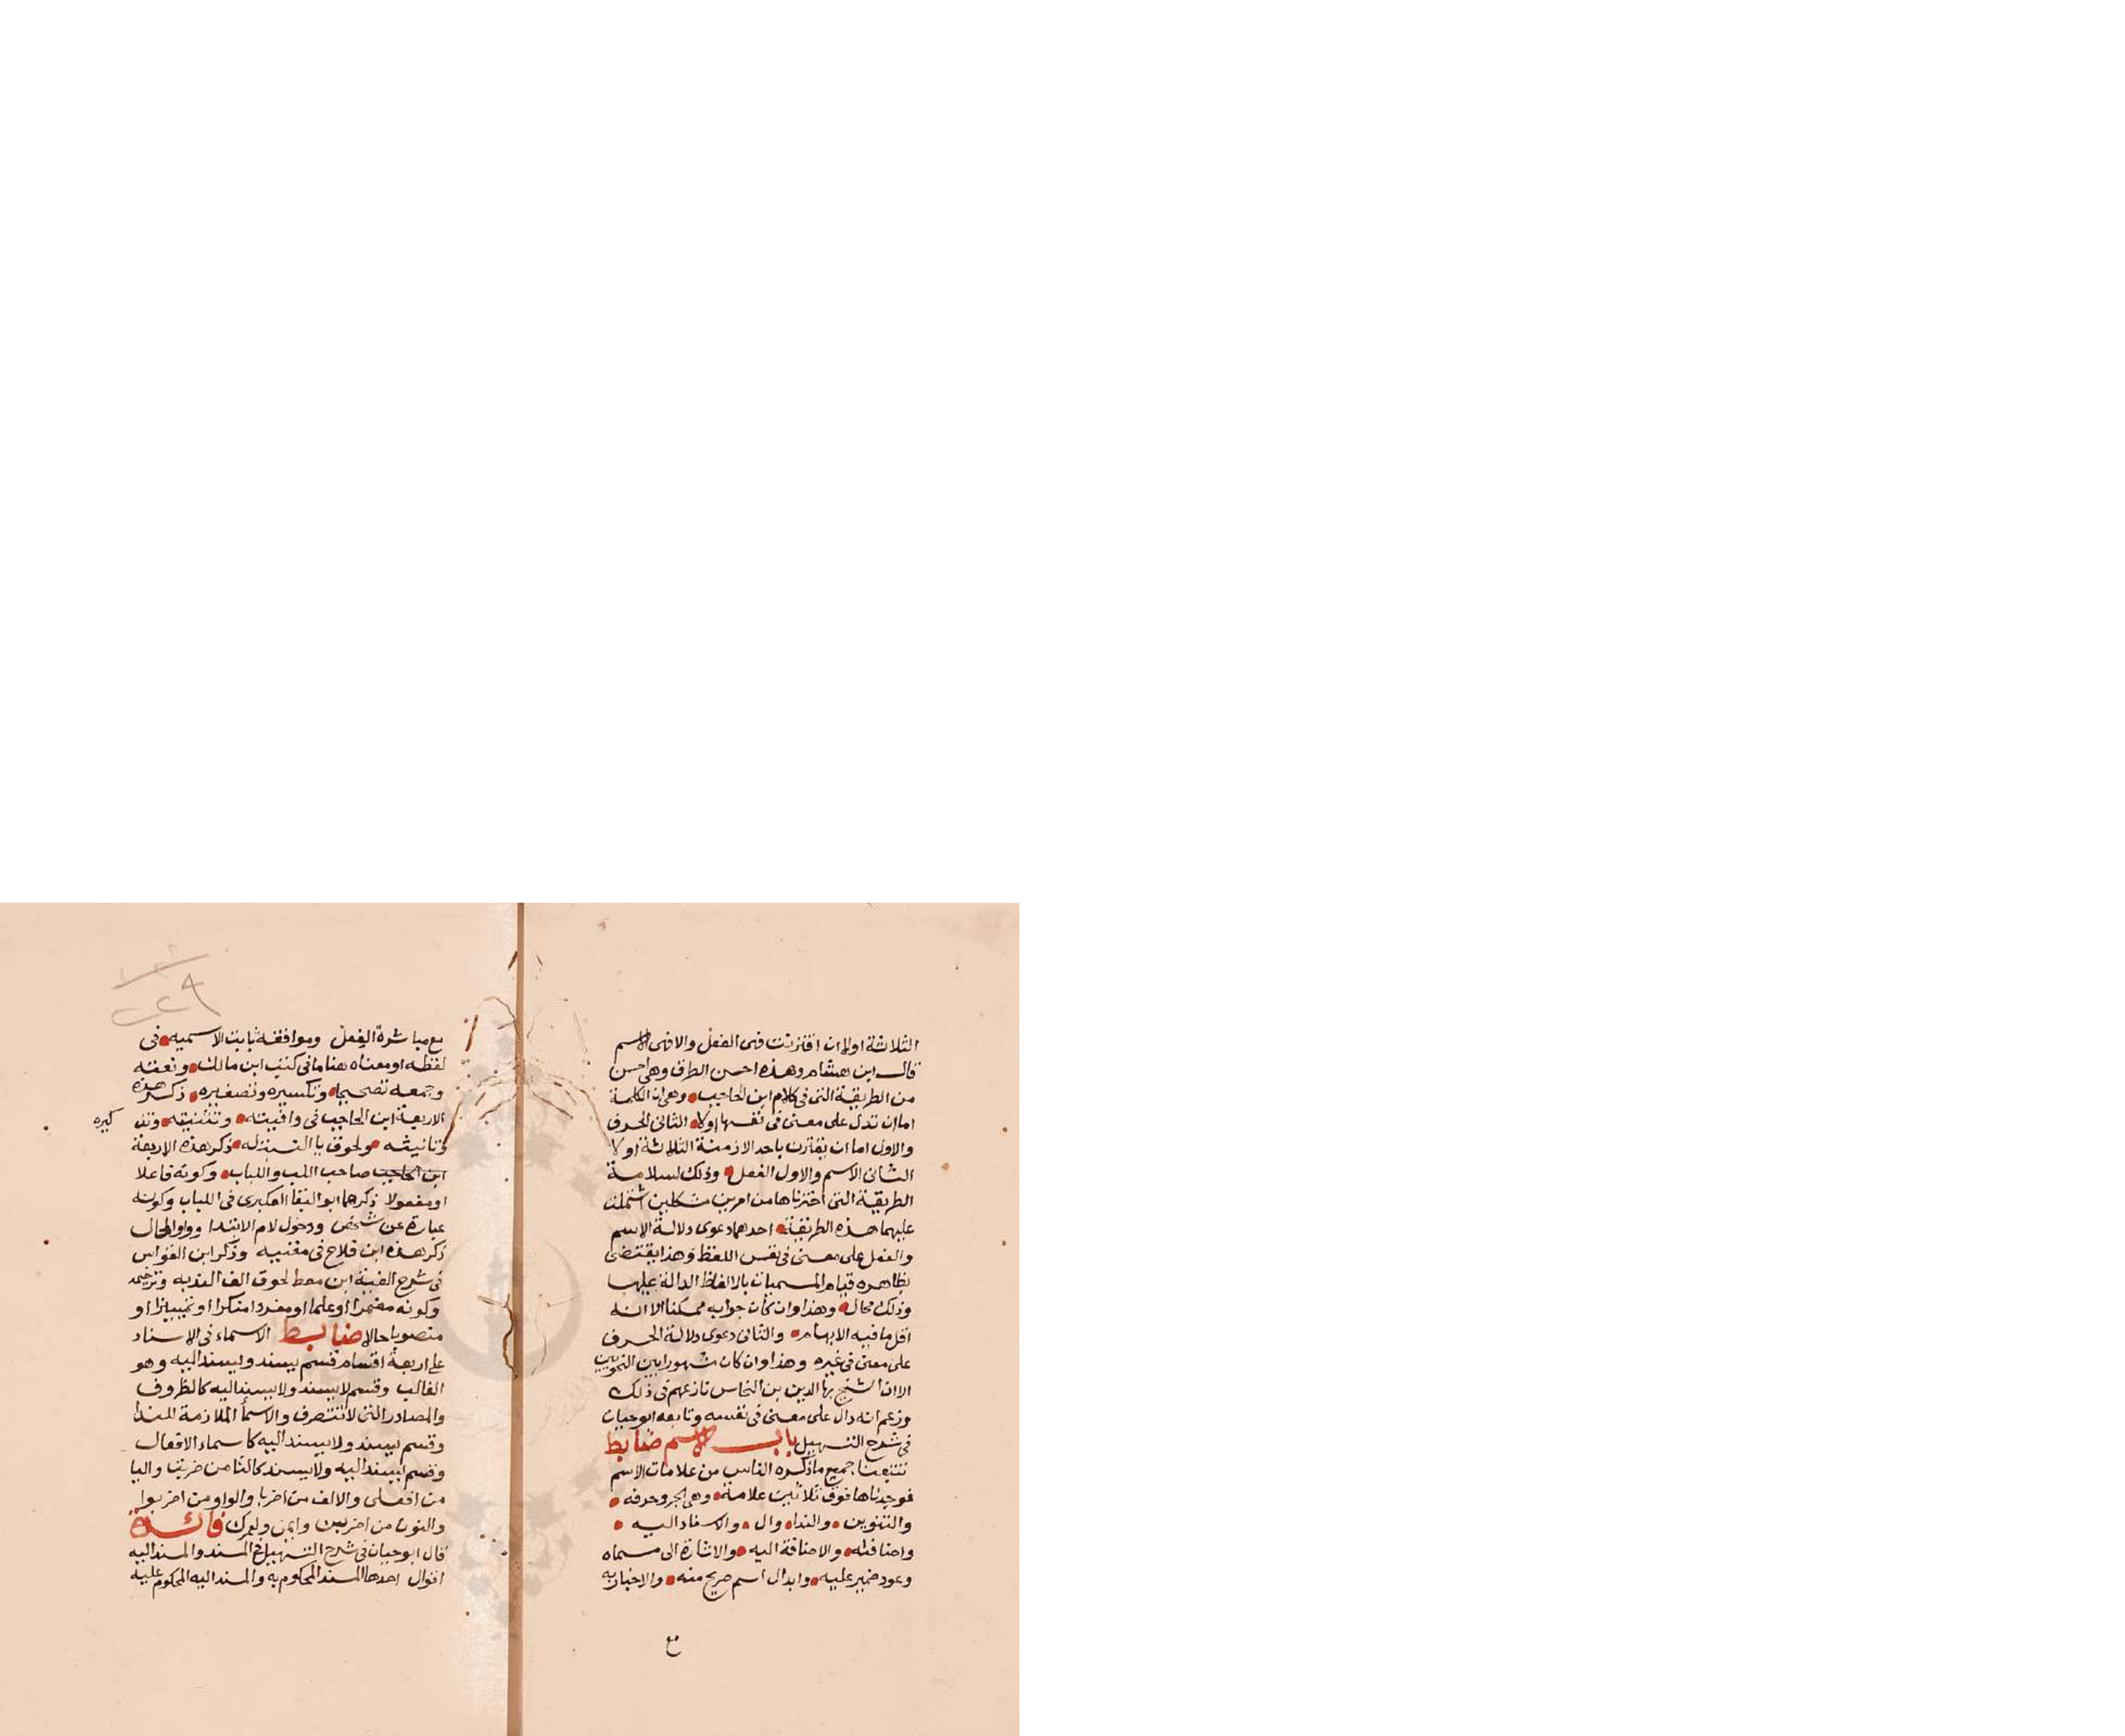 الثلاثة اولا ان اقترنت فهى الفعل والا فهى الاسم
قال ابن هشام وهذه احسن الطرق وهى احسن
من الطريقة التى فى كلام ابن الحاجب وهى ان الكلمة
اما ان تدل على معنى فى نفسها اولا الثانى الحرف
والاول اما ان يقترن باحد الازمنة الثلاثة اولا
الثانى الاسم والاول الفعل وذلك لسلامة
الطريقة التى اخترناها من امرين مشكلين اشتملت
عليهما هذه الطريقة احدهما دعوى دلالة الاسم
والفعل على معنى فى نفس اللفظ وهذا يقتضى
بظاهره قيام المسميات بالالفاظ الدالة عليها
وذلك محال وهذا وان كان جوابه ممكنا الا انه
اقل ما فيه الابهام والثانى دعوى دلالة الحرف
على معنى فى غيره وهذا وان كان مشهورا بين النحويين
الا ان الشيخ بها الدين بن النحاس نازعهم فى ذلك
وزعم انه دال على معنى فى نفسه وتابعه ابوحيان
فى شرح التسهيل باب الاسم ضابط
تتبعنا جميع ماذكره الناس من علامات الاسم
فوجدناها فوق ثلاثين علامة وهى الجر وحرفه
والتنوين والندا وال والاسناد اليه
واضافته والاضافة اليه والاشارة الى مسماه
وعود ضمير عليه وابدال اسم صريح منه والاخبار به
مع
مع مباشرة الفعل وموافقة ثابت الاسميه فى
لفظه او معناه هنا ما فى كتب ابن مالك ونعته
وجمعه تصحيحا وتكسيره وتصغيره ذكر هذه
الاربعة ابن الحاجب فى وافيته وتثنيته وتذ كيره
وتانيثه ولحوق يا النسبة له ذكر هذه الاربعة
ابن الحاجب صاحب اللب واللباب وكونه فاعلا
اومفعولا ذكرهما ابو البقا العكبرى فى اللباب وكونه
عبارة عن شخص ودخول لام الابتدا وواو الحال
ذكر هذه ابن فلاح فى مغنيه وذكر ابن القواس
فى شرح الفية ابن معط لحوق الف الندبه وترخيمه
وكونه مضمرا او علما او مفردا منكرا او تمييزا او
منصوبا حالا ضابط الاسماء فى الاسناد
على اربعة اقسام قسم يسند ويسند اليه وهو
الغالب وقسم لايسند ولايسند اليه كالظروف
والمصادر التى لاتتصرف والاسمأ الملازمة للندا
وقسم يسند ولايسند اليه كاسماء الافعال
وقسم يسند اليه ولايسند كالتا من ضربت واليا
من افعلى والالف من اضربا والواو من اضربوا
والنون من اضربن وايمن ولعمرك فائدة
قال ابو حيان فى شرح التسهيل فى المسند والمسند اليه
اقوال احدها المسند المحكوم به والمسند اليه المحكوم عليه